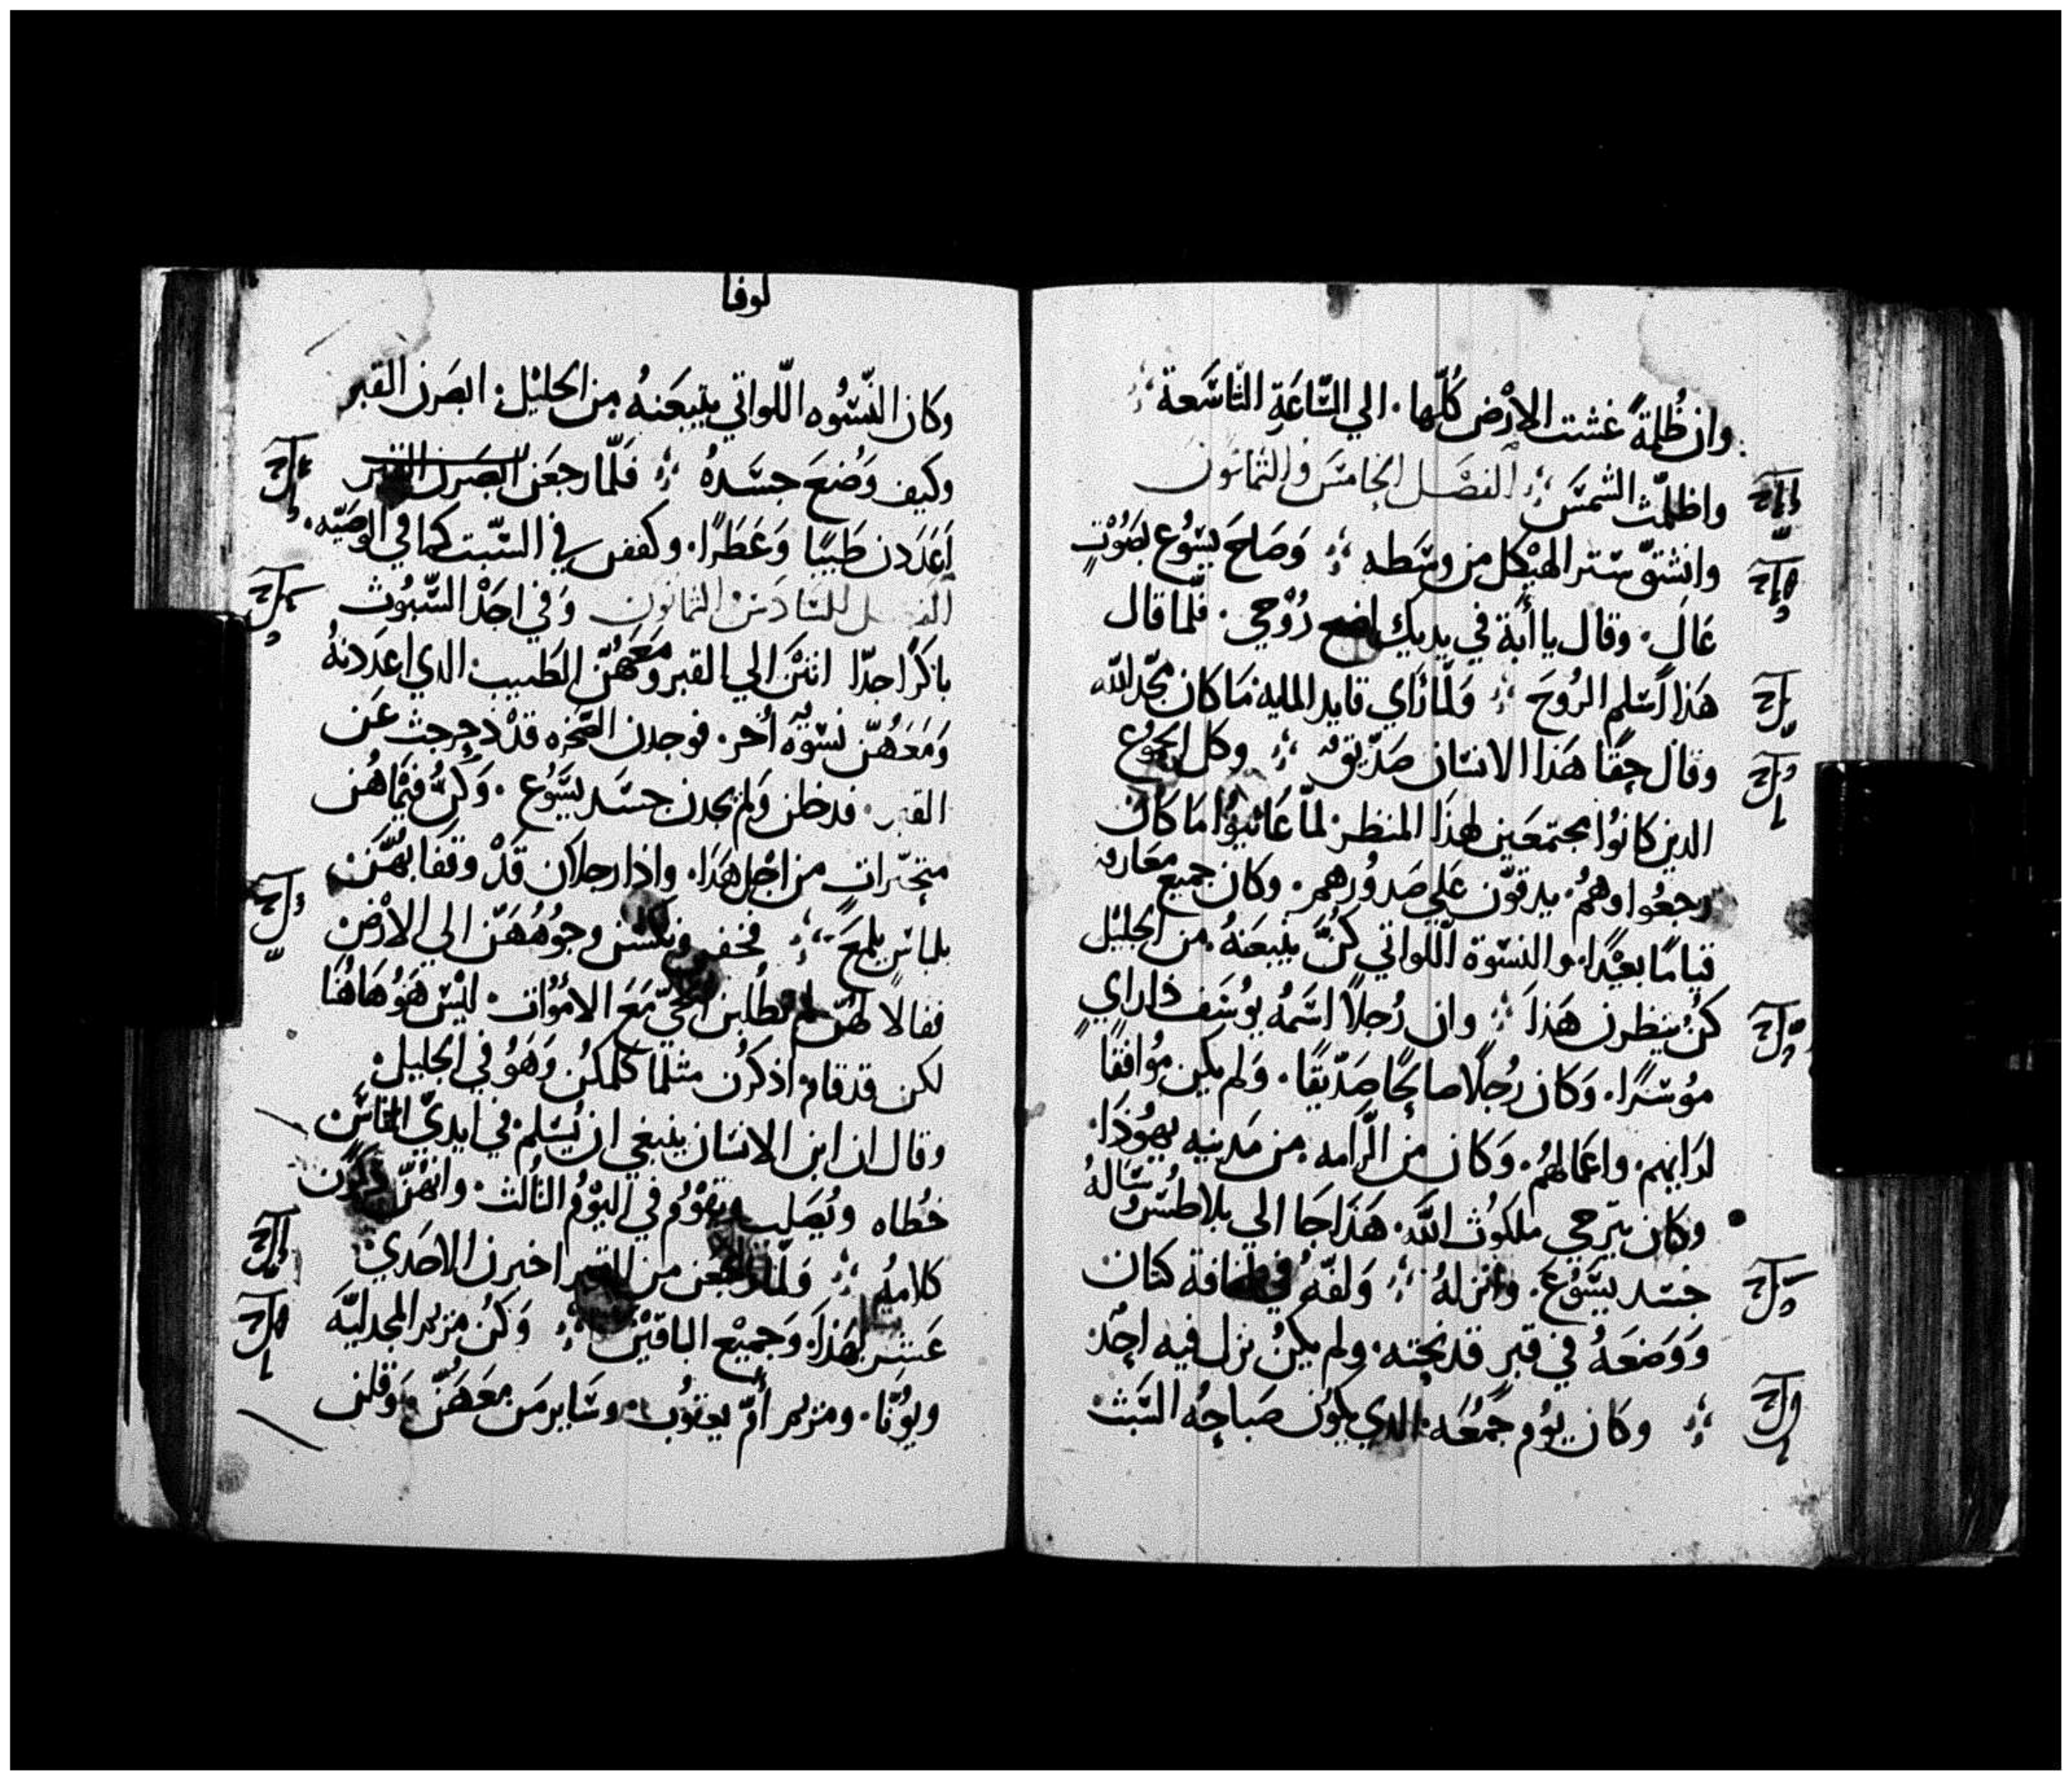 وان ظُلمةً غشت الارْض كُلّها. الي السَّاعَةِ التَّاسَعة
واظلمّت الشمسَ الفصْل الخامسَ والثمانون
وانشقّ سَتر الهيْكل من وسَطه وَصَاحَ يسَوُع بصَوْتٍ
عَالٍ. وقال يا أبَة في يديك اضع رُوْحي. فلَّما قال
هَذا أسَلم الرُوحَ وَلمّا رَاي قايد الماية مَا كان مجّد اللّه
وقال حقًا هَذا الانسَان صَدّيق وكل الجموُع
الدين كانوُا مجتمعَين لهذَا المنظر لمّا عَاينوُا مَا كان
رجعُوا وهمُ. يدقوّن علي صَدوُرهمر. وكان جميع معَارفه
قيامًا بعيْدًا. والنسَوة اللّواتي كُنَّ يتبعَنهُ. من الجليْل
كنُ ينظرن هَذا وان رُجلاً اسَمهُ يوُسَف ذا راي
موُسَرًا. وَكان رُجلاً صالحًا صَدّيقًا. وَلم يكين موُافقًا
لرَايهم. واعَمالهمُ. وَكان من الرَّامه. من مَدينه يهوُدَا.
وكان يترجي ملكوُت اللَّه. هَذا جَا الي بلاطسُ وسَالهُ
جسَد يسَوُعَ. وانزلهُ وَلفّهُ في لفافة كتان
وَوَضعَهُ في قبرٍ قد نحته. ولم يكنُ نزل فيه احدٌ
وكان يوُم جمُعَه. الدي يكوُن صَباحهُ السَبْت
لوقا
وكان النّسَوُه اللّواتي يتبعَنهُ من الجليْل. ابصَرن القبر
وكيف وَضُعَ جسَدهُ فَلّما رجعَن ابصَرن القبر
اَعَدَدن طَيبًا وَعَطرًا. وكففن في السّبت كما في الوصَيّه.
الفصل السَادسَ والثمانون وَفي احَدْ السَّبوُت
باكرًا جدًا اتيْن الي القبر ومَعَهُنّ الطَيب الدي اعدَدنهُ
وَمَعَهُنّ نسَوَه أُخر. فوجدن الصَخره قدْ دحرجت عَن
القبر. فدخلن وَلم يجدن جسَد يسَّوُع. وَكنَُّ فيْما هُن
متحيّرات من اجْل هَذا. واذا رجلان قَدْ وقفا بهّنَ
بلباسٍ يلمعَ فخفن ونكسَن وجوُهُهَنّ الي الارْض
فقالا لهُنّ لم تطلُبن الحيّ مَعَ الاموُات. ليْسَ هَوُ هَاهُنا
لكن قد قام اذكرُن مثلما كلمكنُ وَهَوُ في الجليل
وقال ان ابن الانسَان ينبغي ان يُسَلم في ايديّ الناسَ
خُطاه ويُصَلب ويقوْم في اليوْمُ التالْت. وانهُنّ ذكرُن
كلامهُ وَلمّا رجعَن من القبر اخبرن الاحَدي
عَشر بهَذا. وَجميْع الباقيْن وَكنُ مريم المجدليَّه
ويوُنّا. ومريم أمّ يعقوُب. وسَاير مَن معَهَنُّ وَقلن